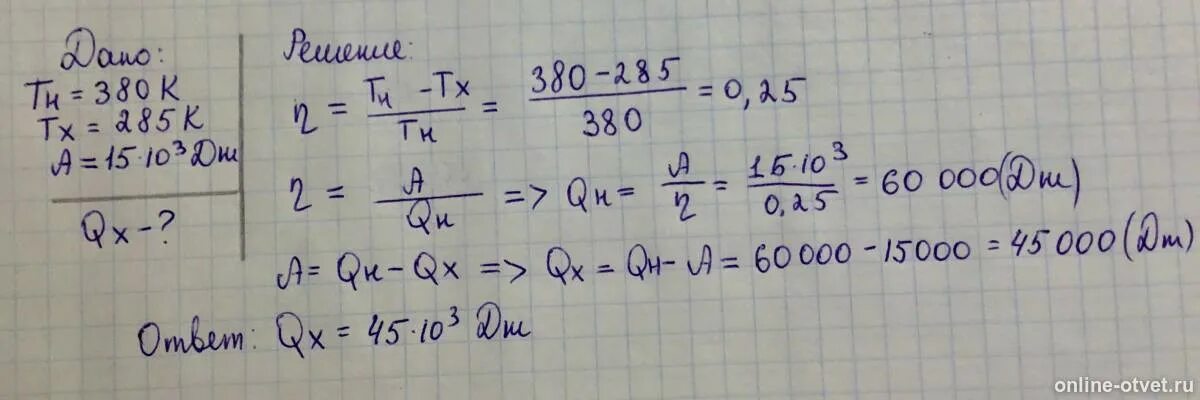 Дано:
Tн = 380 K
Tх = 285 K
A = 15·10³ Дж
Qх - ?
Решение:
η = (Tн - Tх)/Tн = (380 - 285)/380 = 0,25
η = A/Qн => Qн = A/η = 15·10³/0,25 = 60 000 (Дж)
A = Qн - Qх => Qх = Qн - A = 60000 - 15000 = 45000 (Дж)
Ответ: Qх = 45·10³ Дж
online-otvet.ru